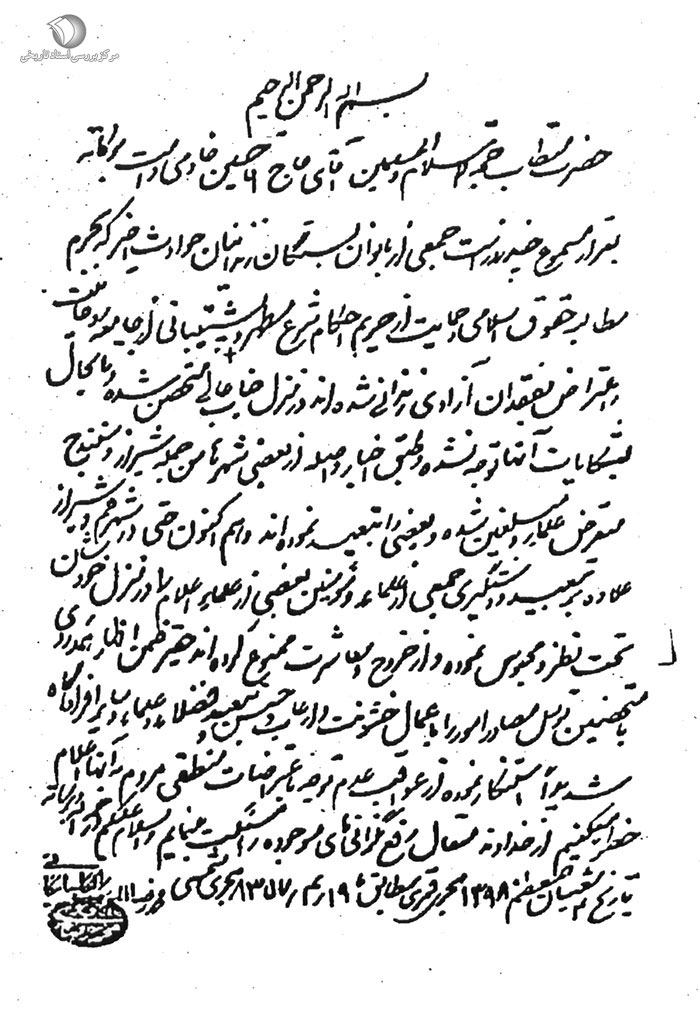 مرکز بررسی اسناد تاریخی
بسم الله الرحمن الرحیم
حضرت مستطاب حجة الاسلام والمسلمین آقای حاج آقا حسین خادمی دامت برکاته
بقرار مسموع جمعی از بانوان بستگان زندانیان حوادث اخیر که بجرم
مطالبه حقوق اسلامی و حمایت از حریم احکام شرع مطهر و پشتیبانی از جامعه روحانیت
و اعتراض بفقدان آزادی زندانی شده اند در منزل جناب عالی متحصن شده و تا بحال
بشکایات آنها توجه نشده و طبق اخبار واصله از بعضی شهرها من جمله شیراز و سنندج
متعرض علماء و مبلغین شده و بعضی را تبعید نموده اند و هم اکنون حتی در شهر قم و شیراز
علاوه بر تبعید و دستگیری جمعی از علماء و مدرسین بعضی از علماء اعلام را در منزل خودشان
تحت نظر و محبوس نموده و از خروج و معاشرت ممنوع کرده اند حقیر ضمن اظهار همدردی
با متحصنین توسل مصادر امور را باعمال خشونت و ارعاب و حبس و تبعید فضلاء و علماء و سایر افراد آگاه
شدیداً استنکار نموده از عواقب عدم توجه باعتراضات منطقی مردم به آنها اعلام
خطر میکنیم از خداوند متعال رفع نگرانی های موجوده را مسئلت مینمایم والسلام علیکم و رحمة الله و برکاته
بتاریخ شعبان المعظم ۱۳۹۸ هجری قمری مطابق ۱۹ ۱۳۵۷ هجری شمسی